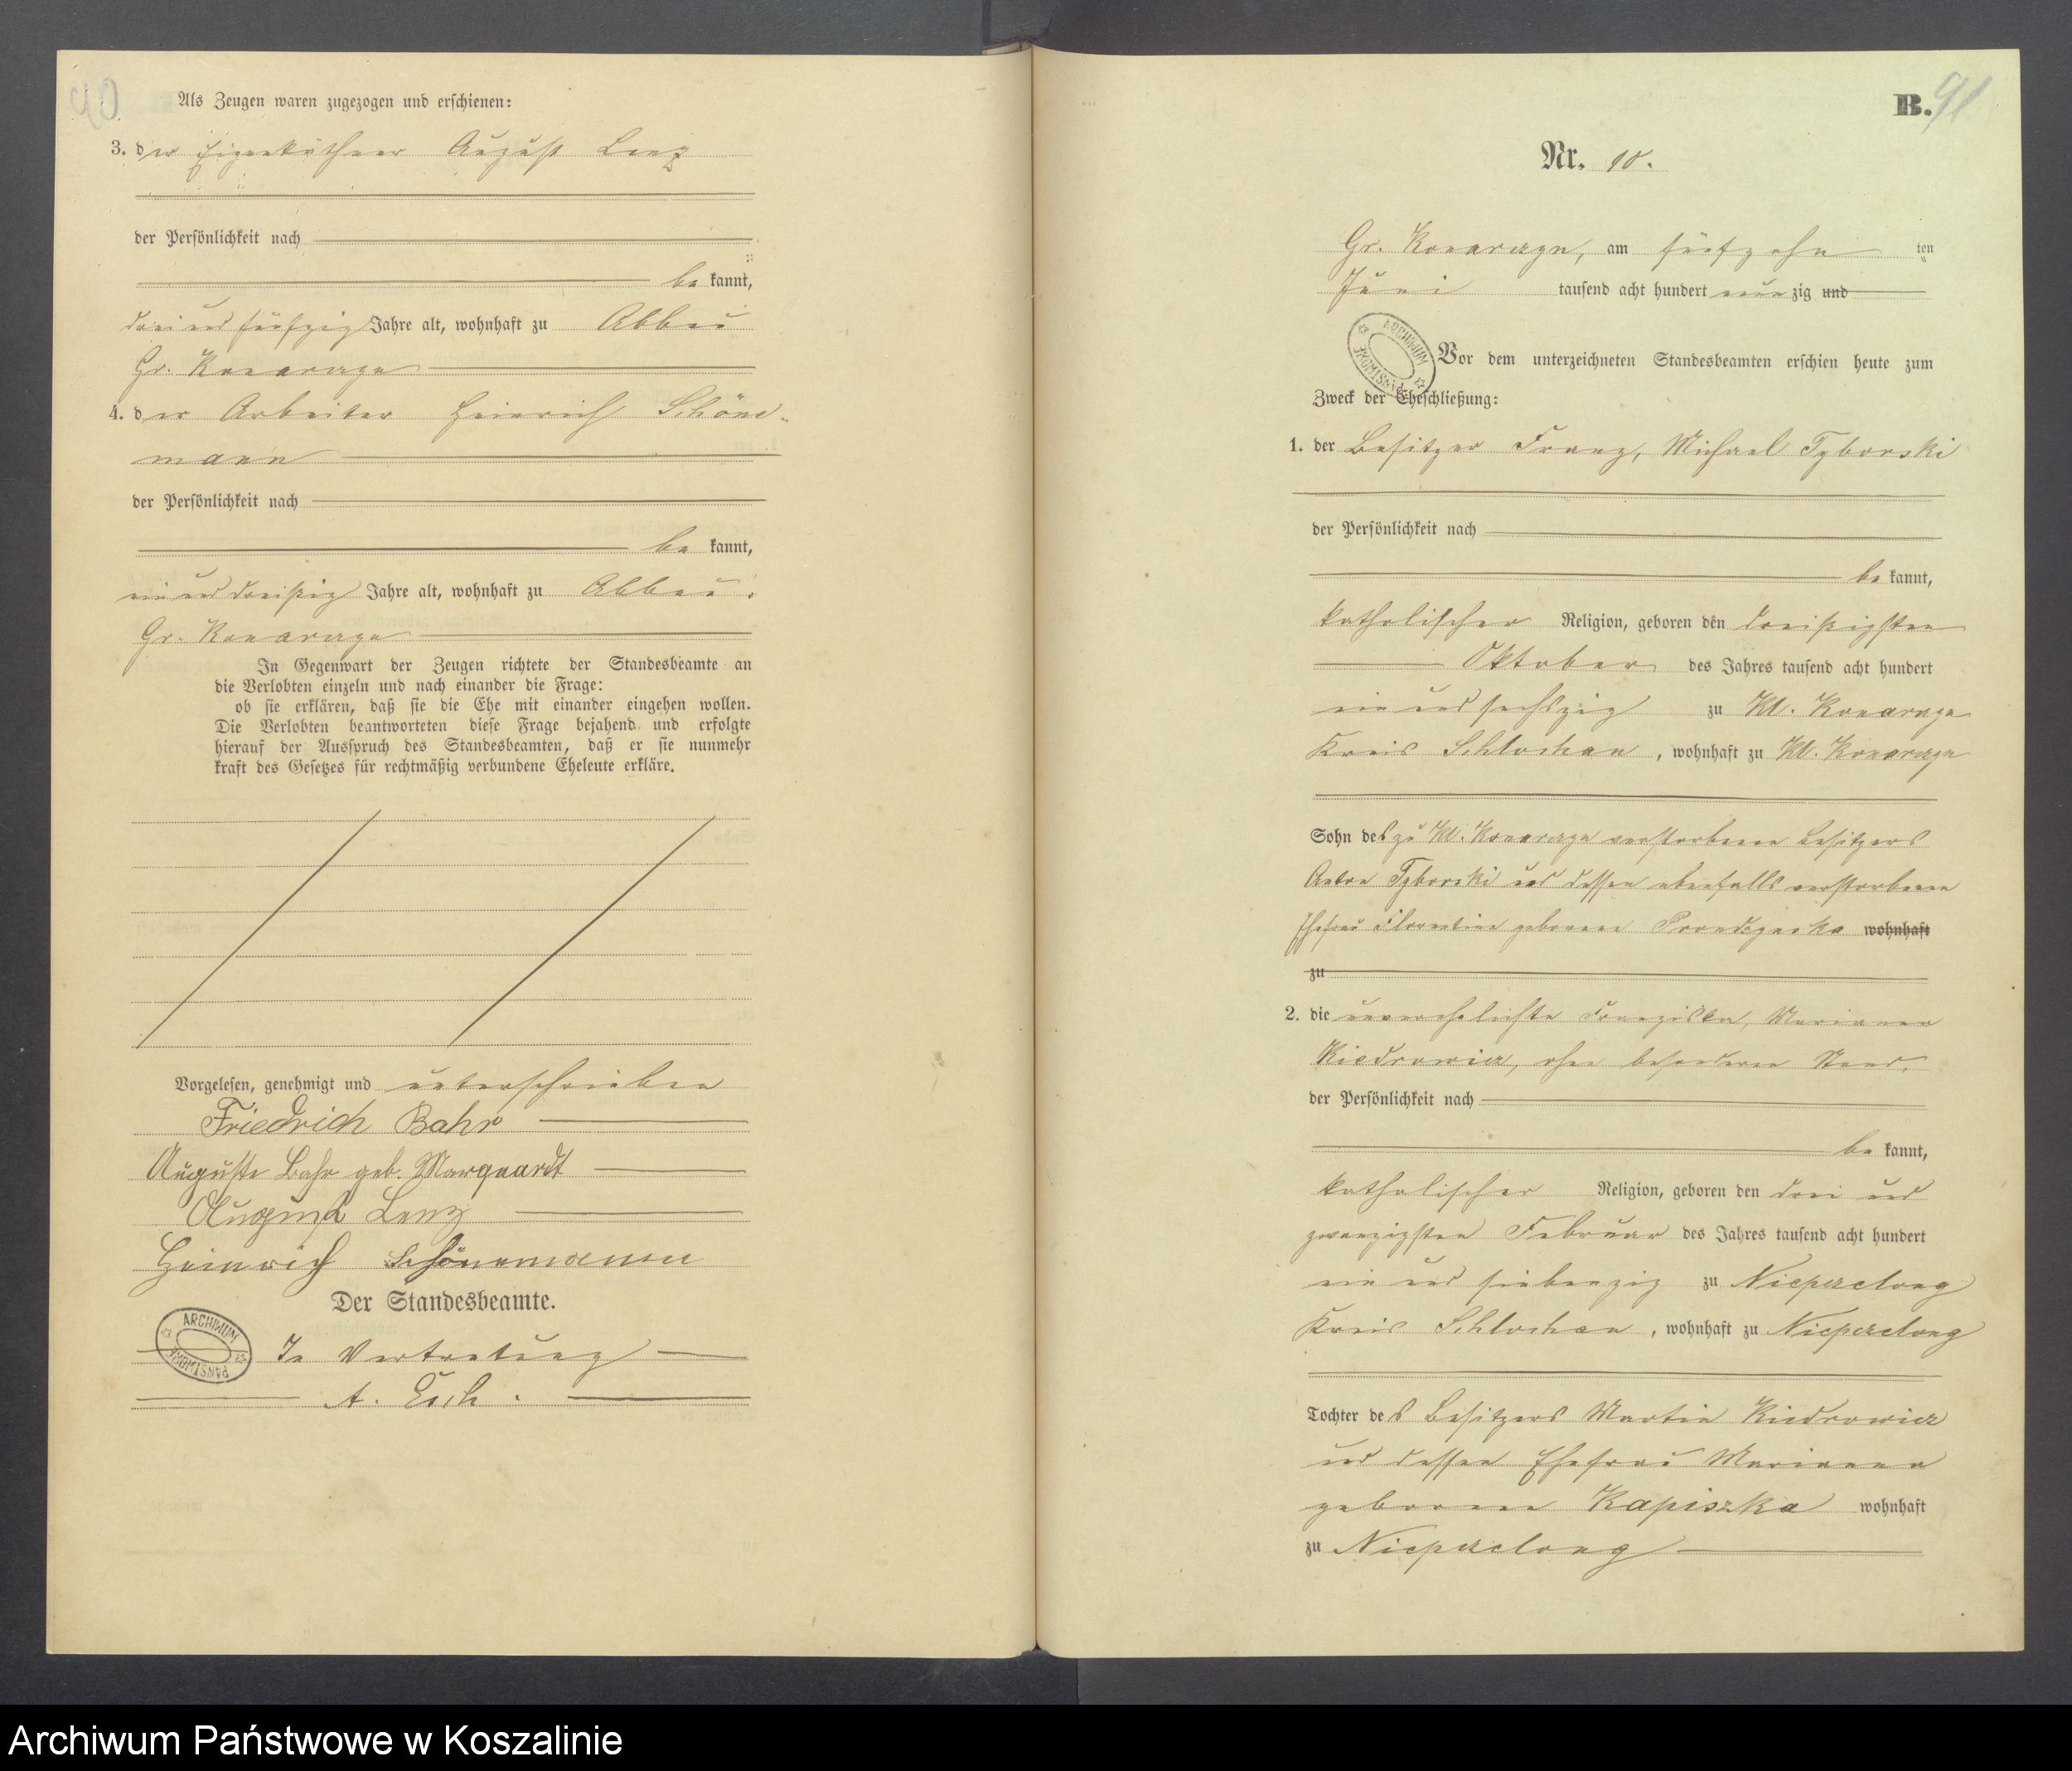 Als Zeugen waren zugezogen und erschienen:
3. der Eigenkäthner August Lenz
der Persönlichkeit nach
be kannt,
drei und fünfzig Jahre alt, wohnhaft zu Abbau
Gr. Konarzyn
4. der Arbeiter Heinrich Schöne-
mann
der Persönlichkeit nach
be kannt,
ein und dreißig Jahre alt, wohnhaft zu Abbau
Gr. Konarzyn
In Gegenwart der Zeugen richtete der Standesbeamte an
die Verlobten einzeln und nach einander die Frage:
ob sie erklären, daß sie die Ehe mit einander eingehen wollen.
Die Verlobten beantworteten diese Frage bejahend und erfolgte
hierauf der Ausspruch des Standesbeamten, daß er sie nunmehr
kraft des Gesetzes für rechtmäßig verbundene Eheleute erkläre.
Vorgelesen, genehmigt und unterschrieben
Friedrich Bahr
Auguste Bahr geb. Marquardt
August Lenz
Heinrich Schönemann
Der Standesbeamte.
ARCHIWUM PAŃSTWOWE
In Vertretung
A.
B. 91
Nr. 10.
Gr. Konarzyn, am fünfzehn ten
Juni tausend acht hundert neun zig und
ARCHIWUM PAŃSTWOWE
Vor dem unterzeichneten Standesbeamten erschien heute zum
Zweck der Eheschließung:
1. der Besitzer Franz, Michael Tyborski
der Persönlichkeit nach
be kannt,
katholischer Religion, geboren den dreißigsten
Oktober des Jahres tausend acht hundert
ein und sechszig zu Kl. Konarzyn
Kreis Schlochau, wohnhaft zu Kl. Konarzyn
Sohn des zu Kl. Konarzyn verstorbenen Besitzers
Anton Tyborski und dessen ebenfalls verstorbenen
Ehefrau Florentine geborene wohnhaft
zu
2. die unverehelichte Franziska, Marianna
Kiedrowicz, ohne besonderen Stand,
der Persönlichkeit nach
be kannt,
katholischer Religion, geboren den drei und
zwanzigsten Februar des Jahres tausend acht hundert
ein und siebenzig zu Niesewanz
Kreis Schlochau, wohnhaft zu
Tochter des Besitzers Martin Kiedrowicz
und dessen Ehefrau Marianna
geborene Kapiszka wohnhaft
zu
Archiwum Państwowe w Koszalinie